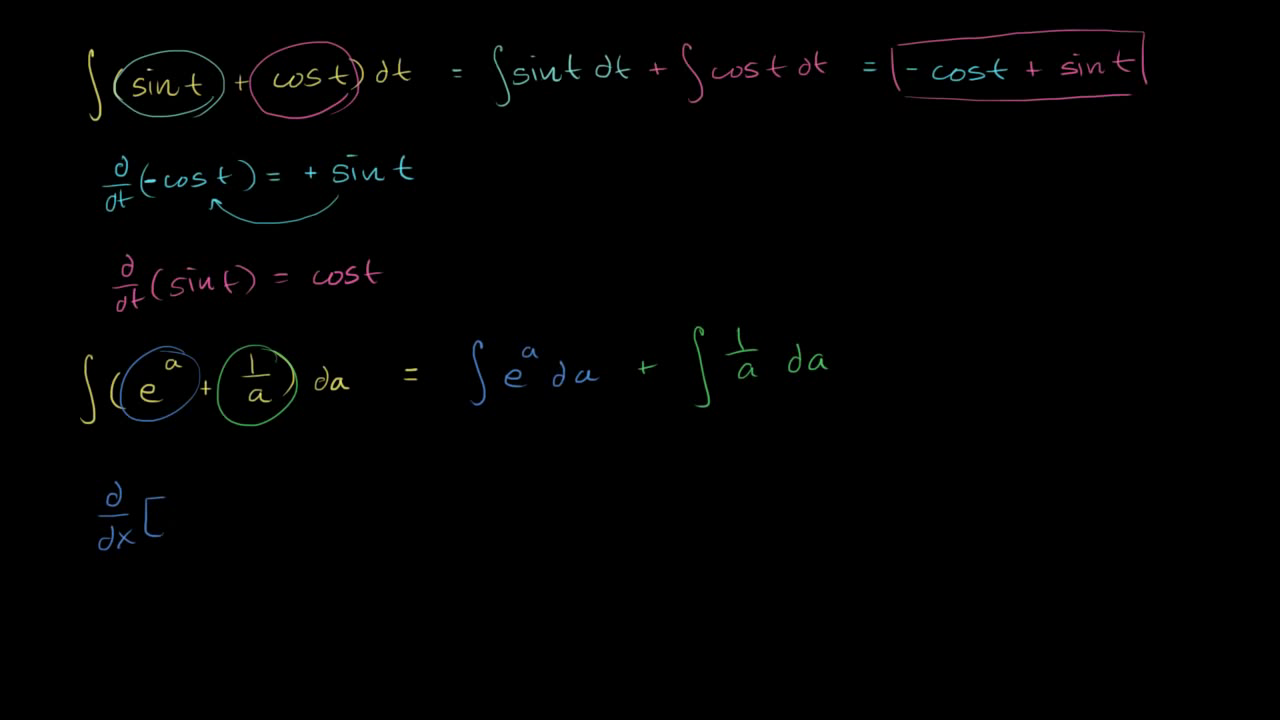 ∫(sin t + cos t) dt = ∫sin t dt + ∫cos t dt = - cos t + sin t
d/dt (-cos t) = + sin t
d/dt (sin t) = cos t
∫(e^a + 1/a) da = ∫e^a da + ∫ 1/a da
d/dx [